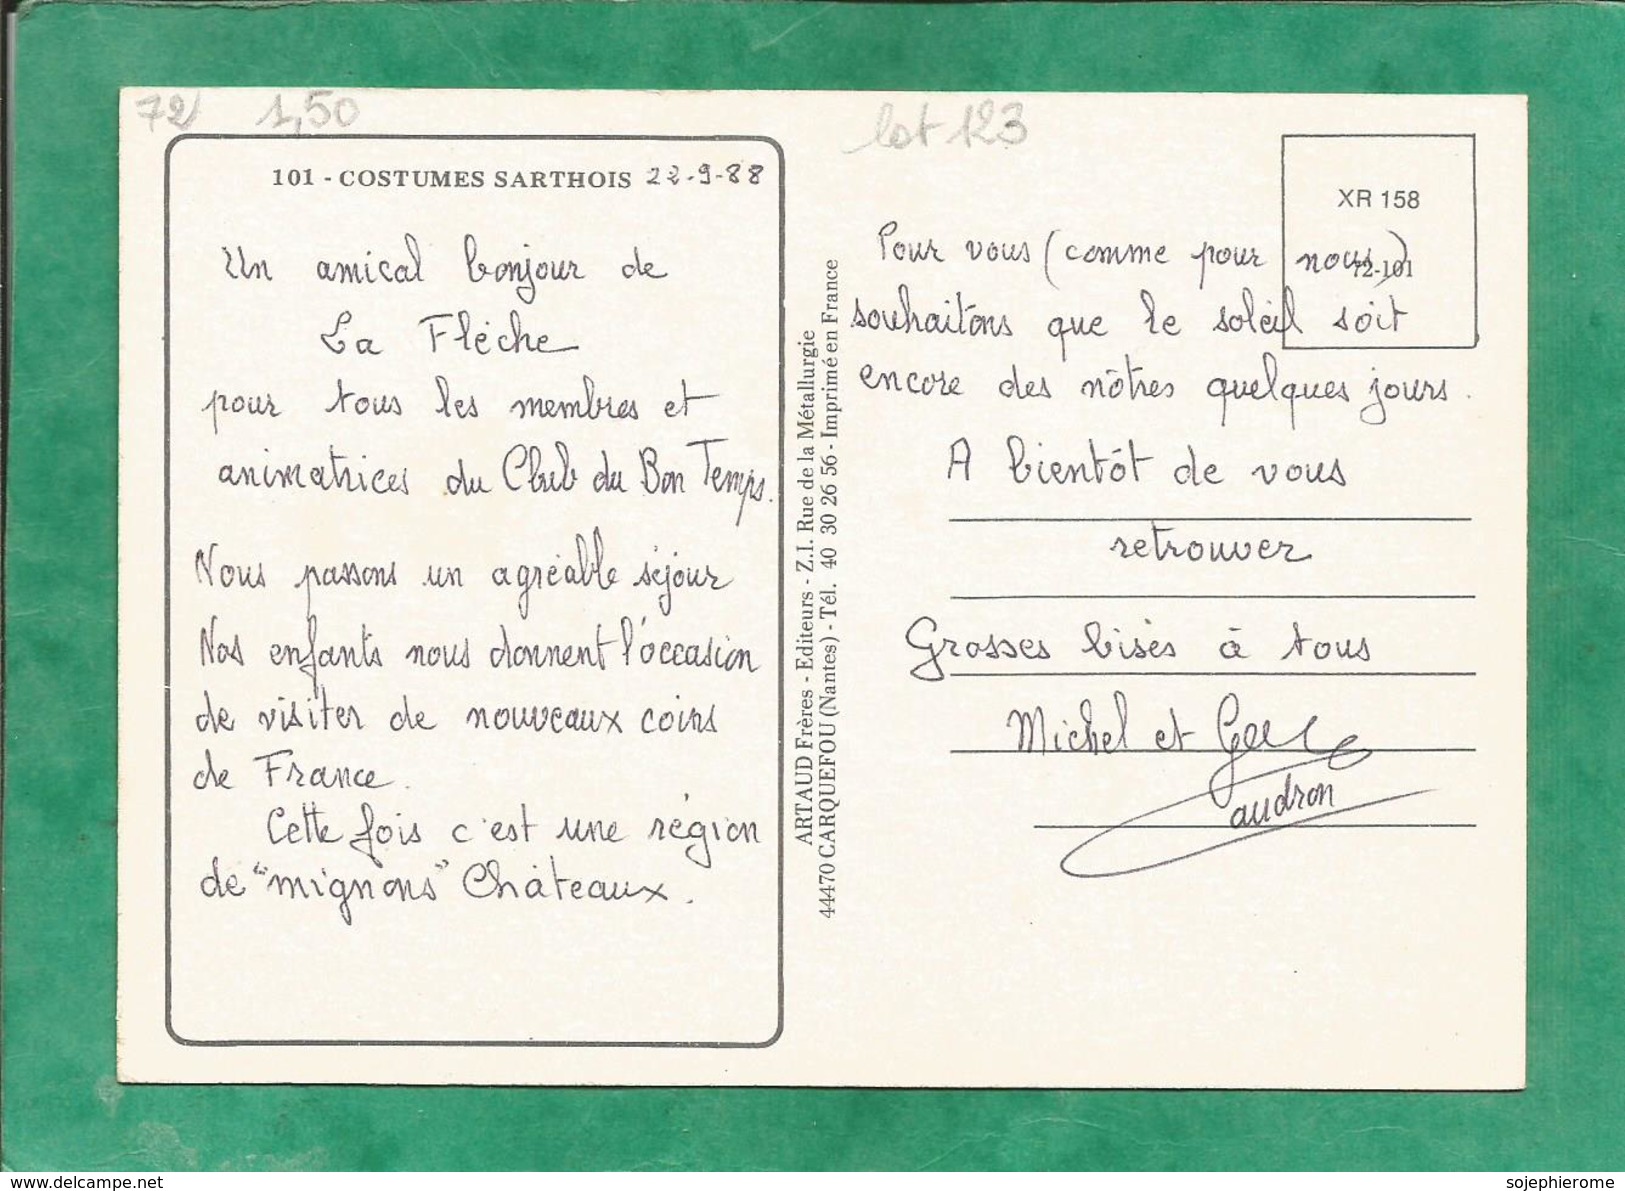 72 1,50
lot 123
101 - COSTUMES SARTHOIS 22-9-88
Un amical bonjour de
La Flèche
pour tous les membres et
animatrices du Club du Bon Temps.
Nous passons un agréable séjour
Nos enfants nous donnent l'occasion
de visiter de nouveaux coins
de France.
Cette fois c'est une région
de "mignons" Châteaux.
ARTAUD Frères - Editeurs - Z.I. Rue de la Métallurgie
44470 CARQUEFOU (Nantes) - Tél. 40 30 26 56 - Imprimé en France
XR 158
72-101
Pour vous (comme pour nous)
souhaitons que le soleil soit
encore des nôtres quelques jours.
A bientôt de vous
retrouver
Grosses bises à tous
Michel et
audron
www.delcampe.net
sojephierome